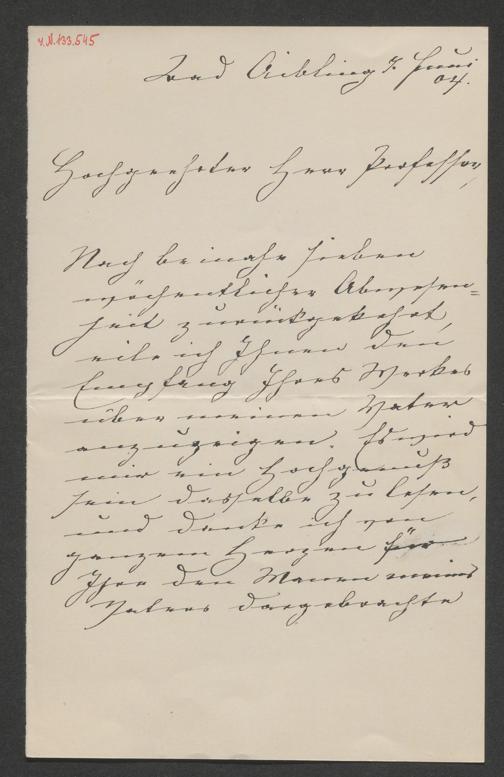 4.N.133.545
Bad Aibling 7. Juni
04.
Hochgeehrter Herr Professor,
Nach beinahe sieben
wöchentlicher Abwesen=
heit zurückgekehrt,
eile ich Ihnen den
Empfang Ihres Werkes
über meinen Vater
anzuzeigen. Es wird
mir ein Hochgenuß
sein dasselbe zu lesen,
und danke ich von
ganzem Herzen für
Ihre den Manen meines
Vaters dargebrachte